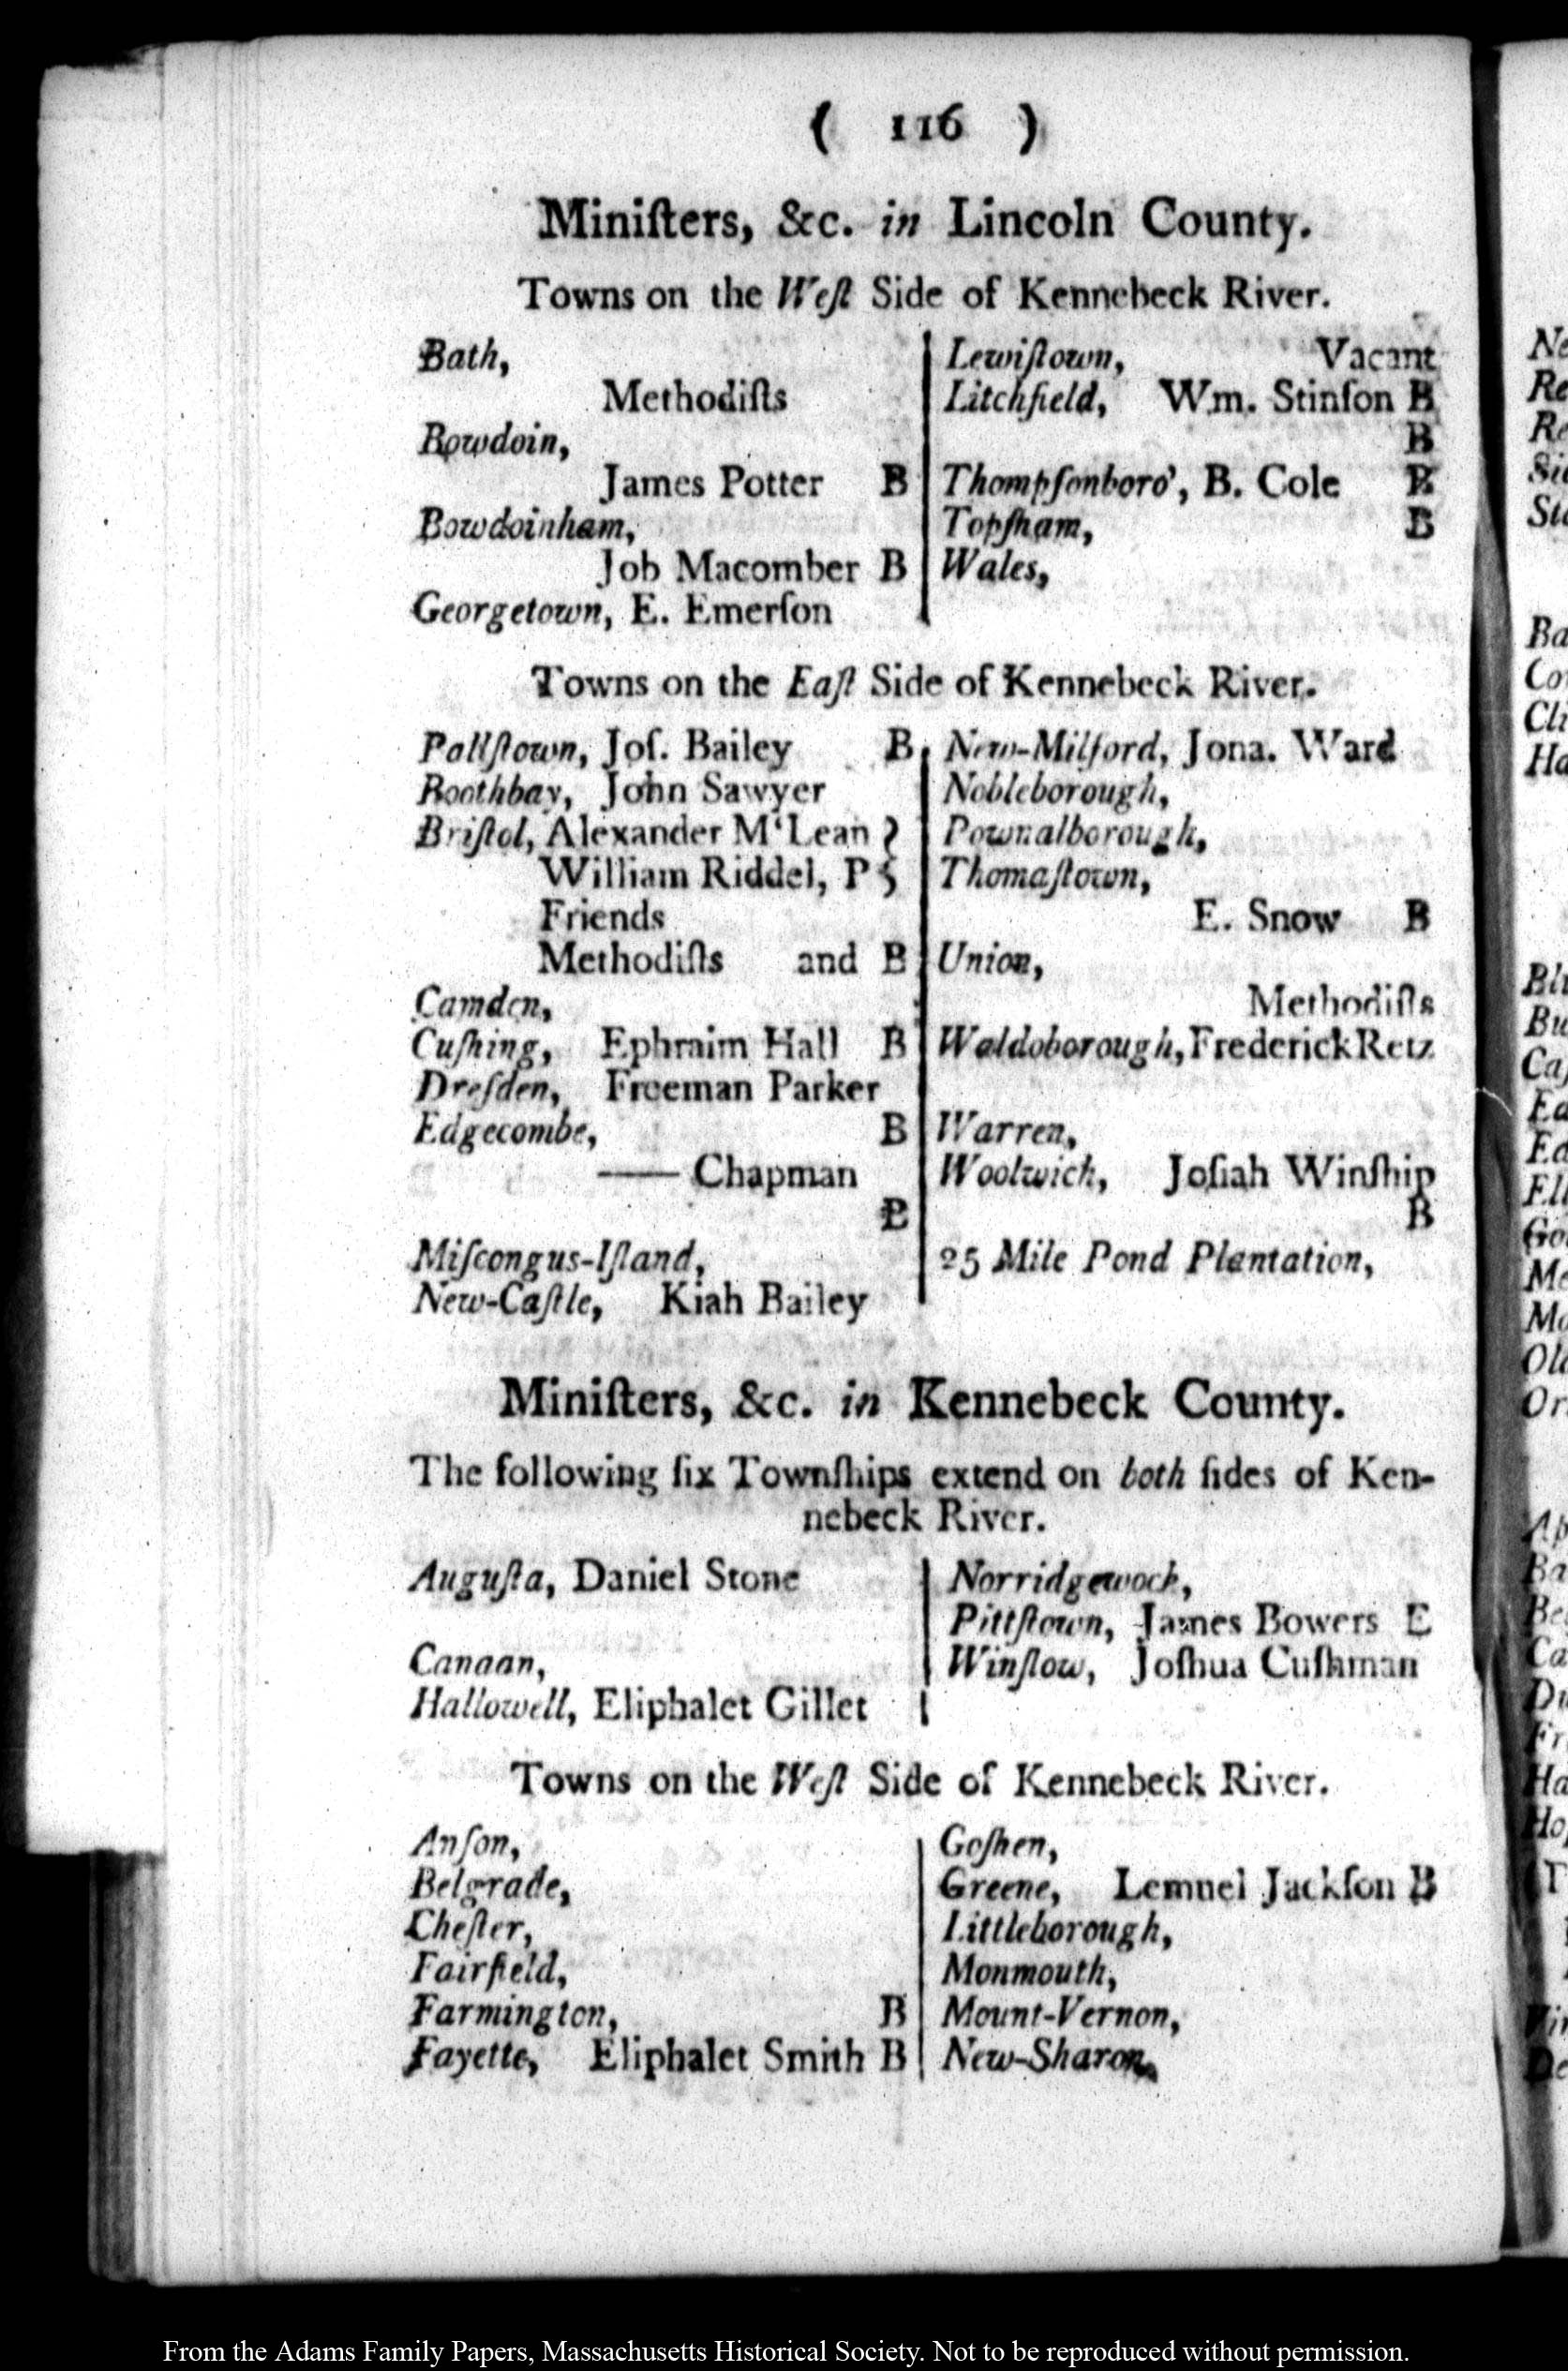 ( 116 )
Miniſters, &c. in Lincoln County.
Towns on the Weſt Side of Kennebeck River.
Bath,
Methodiſts
Bowdoin,
James Potter B
Bowdoinham,
Job Macomber B
Georgetown, E. Emerſon
Lewiſtown, Vacant
Litchfield, Wm. Stinſon B
B
Thompſonboro', B. Cole B
Topſham, B
Wales,
Towns on the Eaſt Side of Kennebeck River.
Pallſtown, Joſ. Bailey B
Boothbay, John Sawyer
Briſtol, Alexander M‘Lean }
William Riddel, P }
Friends
Methodiſts and B
Camden,
Cuſhing, Ephraim Hall B
Dreſden, Freeman Parker
Edgecombe, B
—— Chapman
B
Miſcongus-Iſland,
New-Caſtle, Kiah Bailey
New-Milford, Jona. Ward
Nobleborough,
Pownalborough,
Thomaſtown,
E. Snow B
Union,
Methodiſts
Waldoborough, Frederick Retz
Warren,
Woolwich, Joſiah Winſhip
B
25 Mile Pond Plantation,
Miniſters, &c. in Kennebeck County.
The following ſix Townſhips extend on both ſides of Ken-
nebeck River.
Auguſta, Daniel Stone
Canaan,
Hallowell, Eliphalet Gillet
Norridgewock,
Pittſtown, James Bowers E
Winſlow, Joſhua Cuſhman
Towns on the Weſt Side of Kennebeck River.
Anſon,
Belgrade,
Cheſter,
Fairfield,
Farmington, B
Fayette, Eliphalet Smith B
Goſhen,
Greene, Lemuel Jackſon B
Littleborough,
Monmouth,
Mount-Vernon,
New-Sharon,
From the Adams Family Papers, Massachusetts Historical Society. Not to be reproduced without permission.